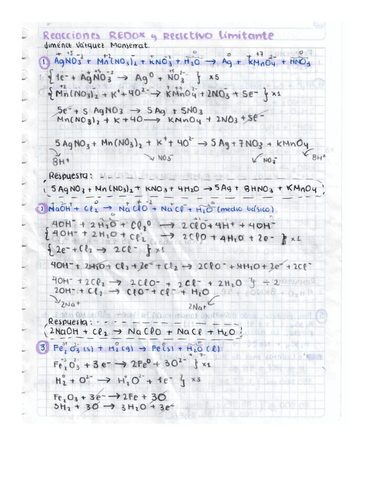 Reacciones REDOX y Reactivo Limitante
Jiménez Vázquez Monserrat
1 AgNO₃ + Mn(NO₃)₂ + KNO₃ + H₂O → Ag + KMnO₄ + HNO₃
{ 1e⁻ + AgNO₃ → Ag⁰ + NO₃⁻ } x5
{ Mn(NO₃)₂ + K⁺ + 4O²⁻ → KMnO₄ + 2NO₃ + 5e⁻ } x1
5e⁻ + 5 AgNO₃ → 5Ag + 5NO₃
Mn(NO₃)₂ + K + 4O → KMnO₄ + 2NO₃ + 5e⁻
5AgNO₃ + Mn(NO₃)₂ + K + 4O → 5Ag + 7NO₃ + KMnO₄
8H⁺ NO₃⁻ NO₃⁻ 8H⁺
Respuesta:
5AgNO₃ + Mn(NO₃)₂ + KNO₃ + 4H₂O → 5Ag + 8HNO₃ + KMnO₄
2 NaOH + Cl₂ → NaClO + NaCl + H₂O (medio básico)
{ 4OH⁻ + 2H₂O + Cl₂ → 2ClO + 4H⁺ + 4OH⁻
{ 4OH⁻ + Cl₂ → 2ClO + 4H₂O + 2e⁻ } x1
{ 2e⁻ + Cl₂ → 2Cl⁻ } x1
4OH⁻ + 2H₂O + Cl₂ + 2e⁻ + Cl₂ → 2ClO⁻ + 4H₂O + 2e⁻ + 2Cl
4OH⁻ + 2Cl₂ → 2ClO⁻ + 2Cl⁻ + 2H₂O ÷ 2
2OH⁻ + Cl₂ → ClO⁻ + Cl⁻ + H₂O
2Na⁺ 2Na⁺
Respuesta:
2NaOH + Cl₂ → NaClO + NaCl + H₂O
3 Fe₂O₃(s) + H₂(g) → Fe(s) + H₂O(l)
Fe₂O₃ + 3e⁻ → 2Fe⁰ + 3O²⁻ } x1
H₂ + O²⁻ → H₂O + 1e⁻ } x3
Fe₂O₃ + 3e⁻ → 2Fe + 3O
3H₂ + 3O → 3H₂O + 3e⁻